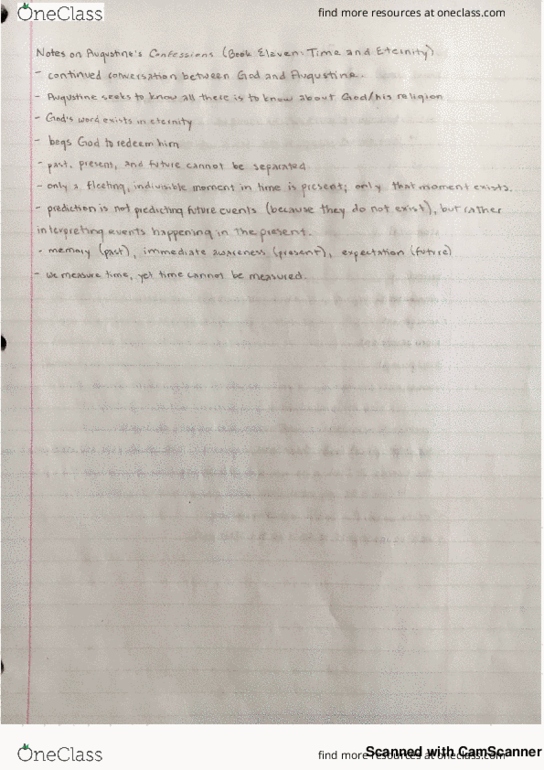 OneClass
find more resources at oneclass.com
Notes on Augustine's Confessions (Book Eleven: Time and Eternity)
- continued conversation between God and Augustine.
- Augustine seeks to know all there is to know about God/his religion
- God's word exists in eternity
- begs God to redeem him
- past, present, and future cannot be separated
- only a fleeting, indivisible moment in time is present; only that moment exists.
- prediction is not predicting future events (because they do not exist), but rather
interpreting events happening in the present.
- memory (past), immediate awareness (present), expectation (future)
- we measure time, yet time cannot be measured.
OneClass
find more resources at oneclass.com
Scanned with CamScanner